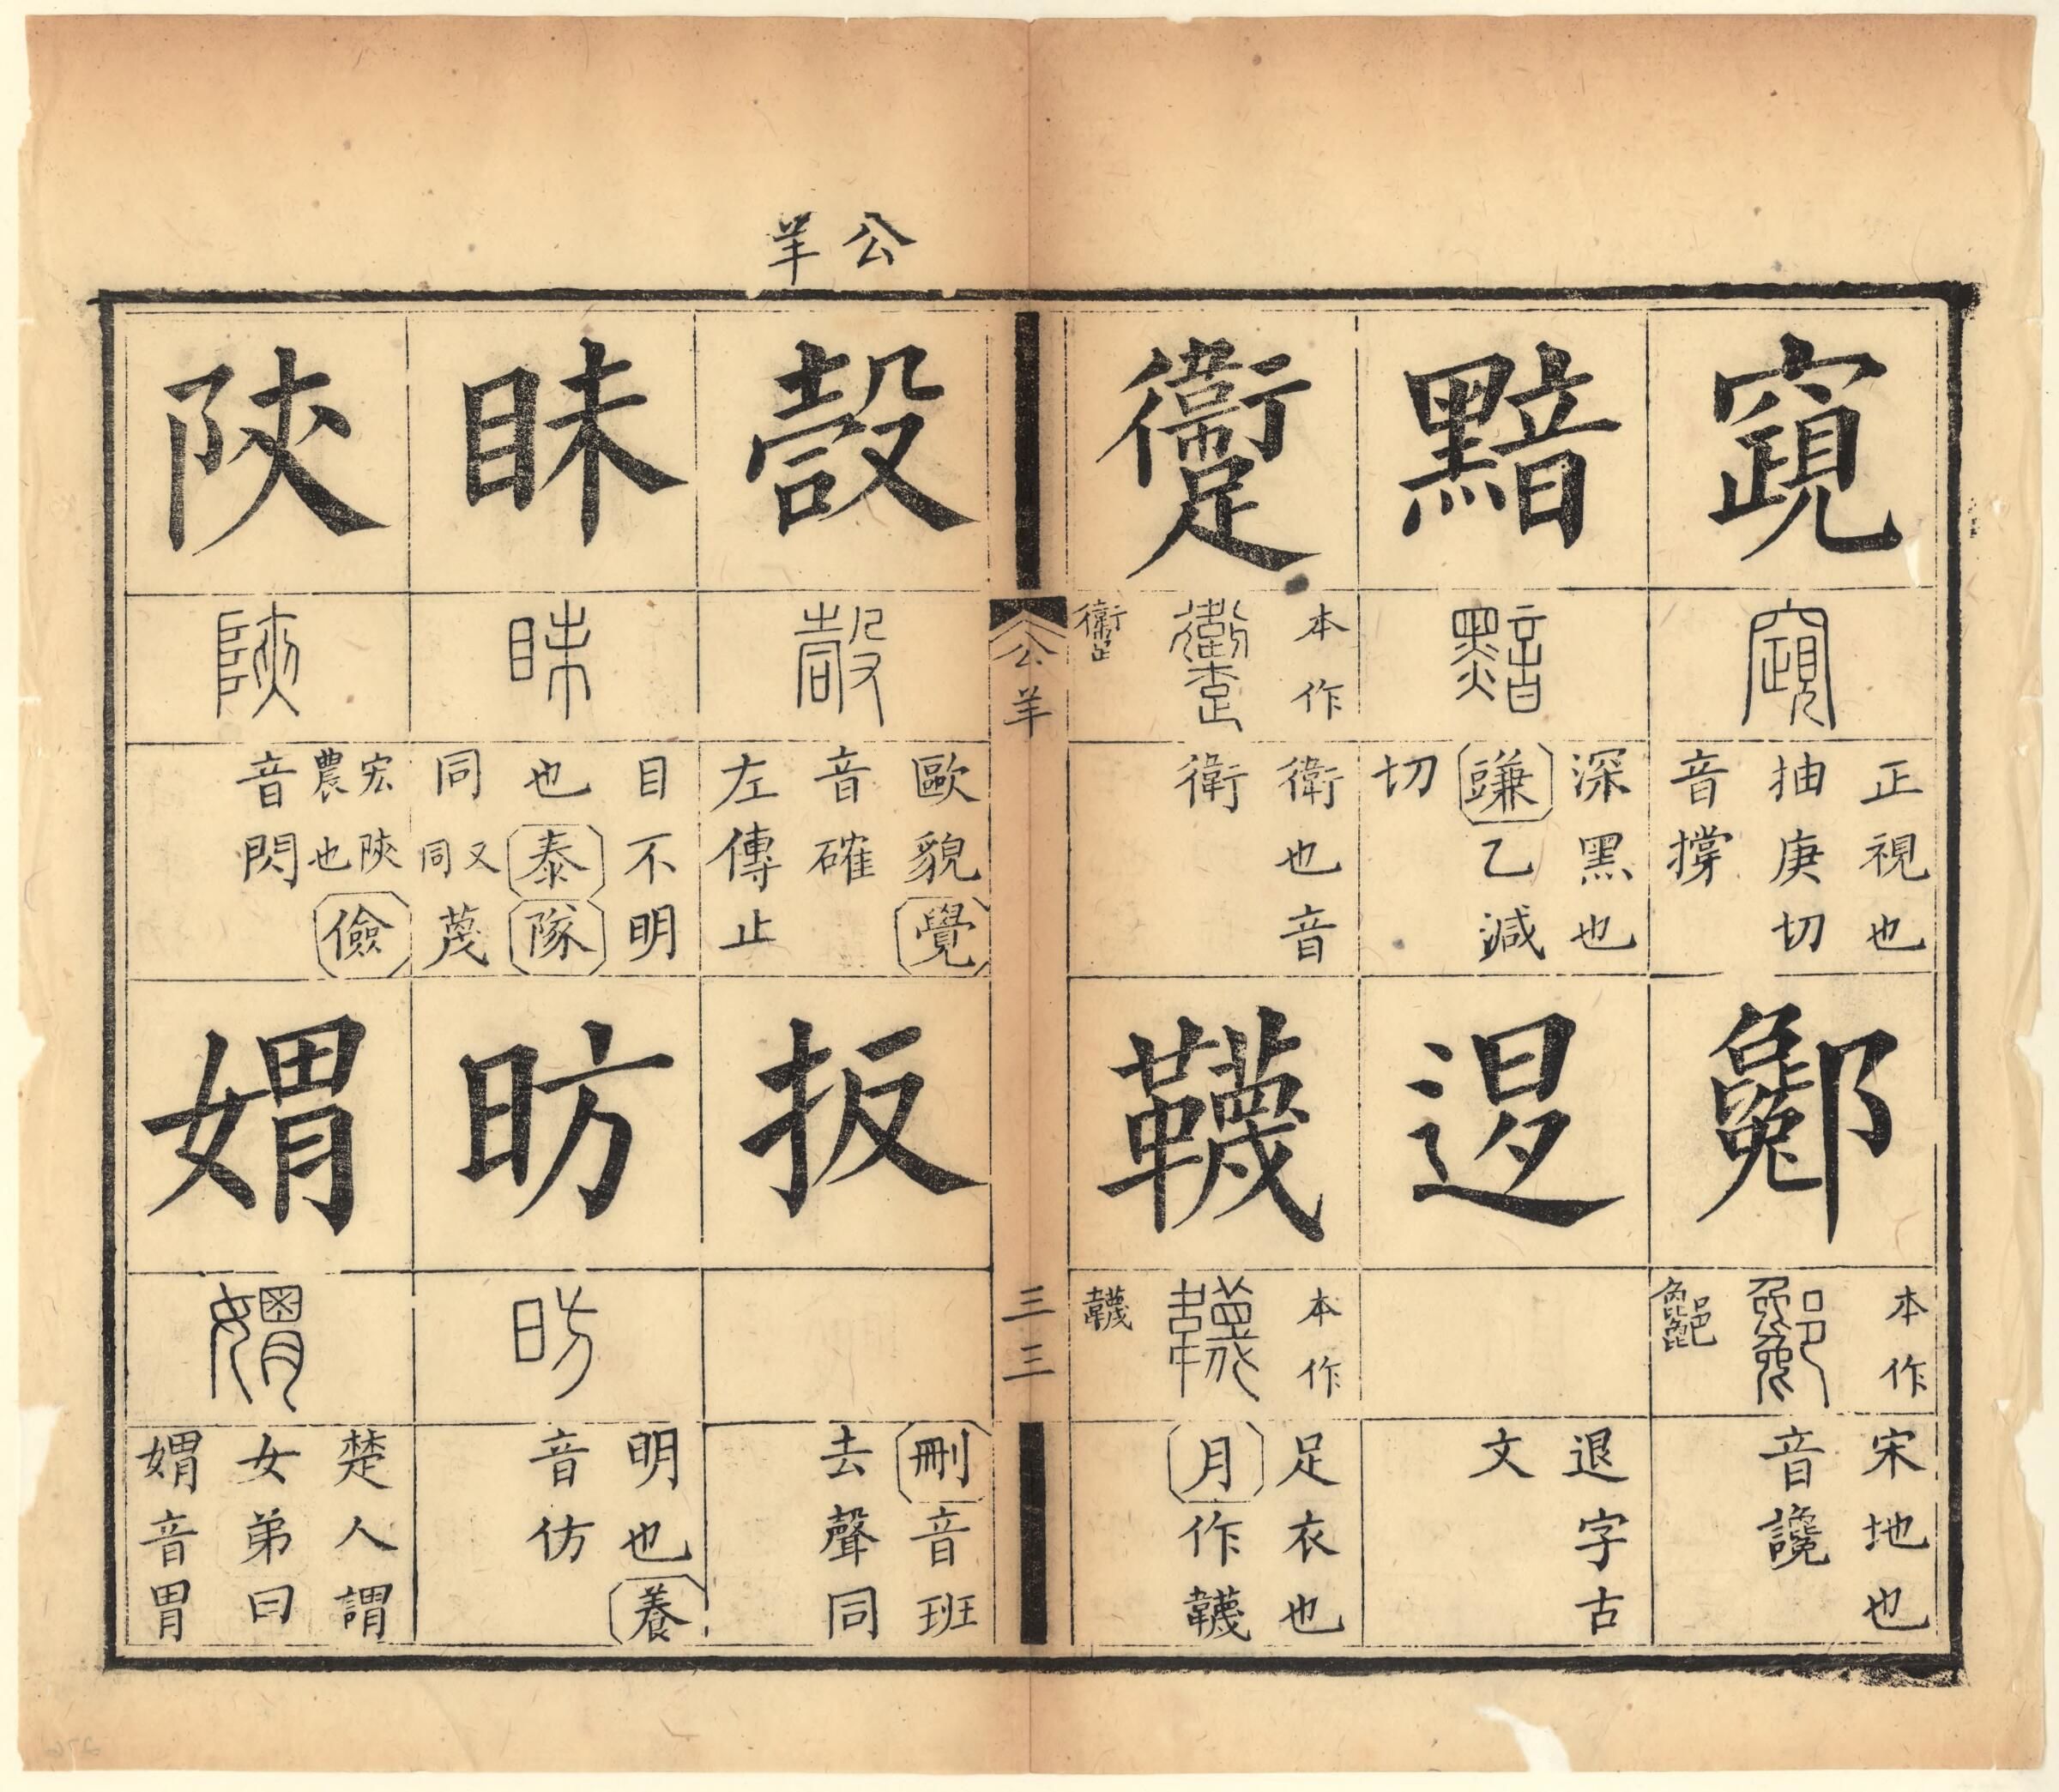 竀
正視也
抽庚切
音撐
酁
本作
宋地也
音讒
黯
深黑也
豏乙減
切
退字古
文
躛
本作
衛也音
衛
韈
本作
韤
足衣也
月作韤
公羊
三三
公羊
嗀
歐貌覺
音確
左傳止
扳
刪音班
去聲同
眛
目不明
也泰隊
同又同蔑
昉
明也養
音仿
陝
宏陝
農也儉
音閃
媦
楚人謂
女弟曰
媦音胃